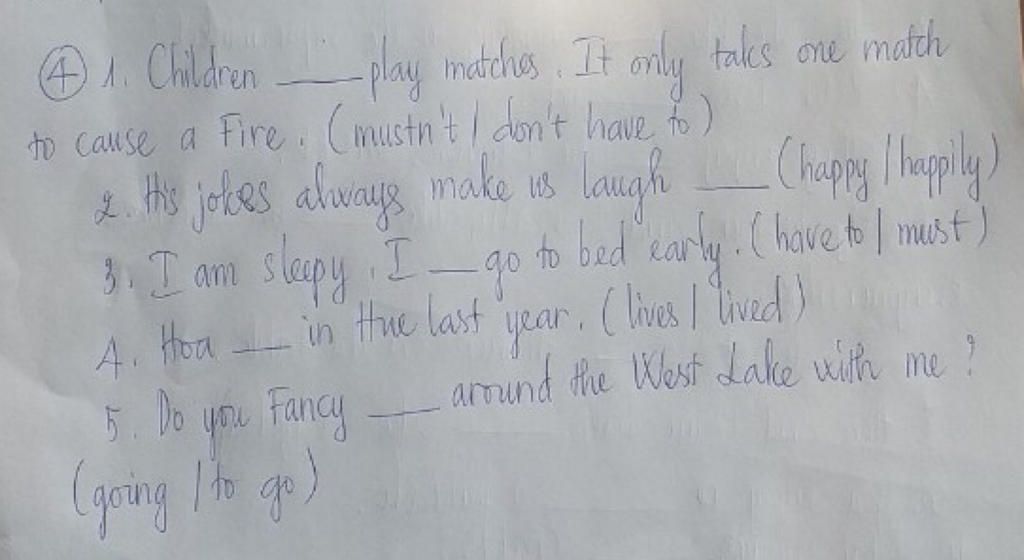 ④ 1. Children ___ play matches. It only taks one match
to cause a Fire. (mustn't / don't have to)
2. His jokes always make us laugh ___ (happy / happily)
3. I am sleepy. I ___ go to bed early. (have to / must)
4. Hoa ___ in Hue last year. (lives / lived)
5. Do you Fancy ___ around the West Lake with me?
(going / to go)